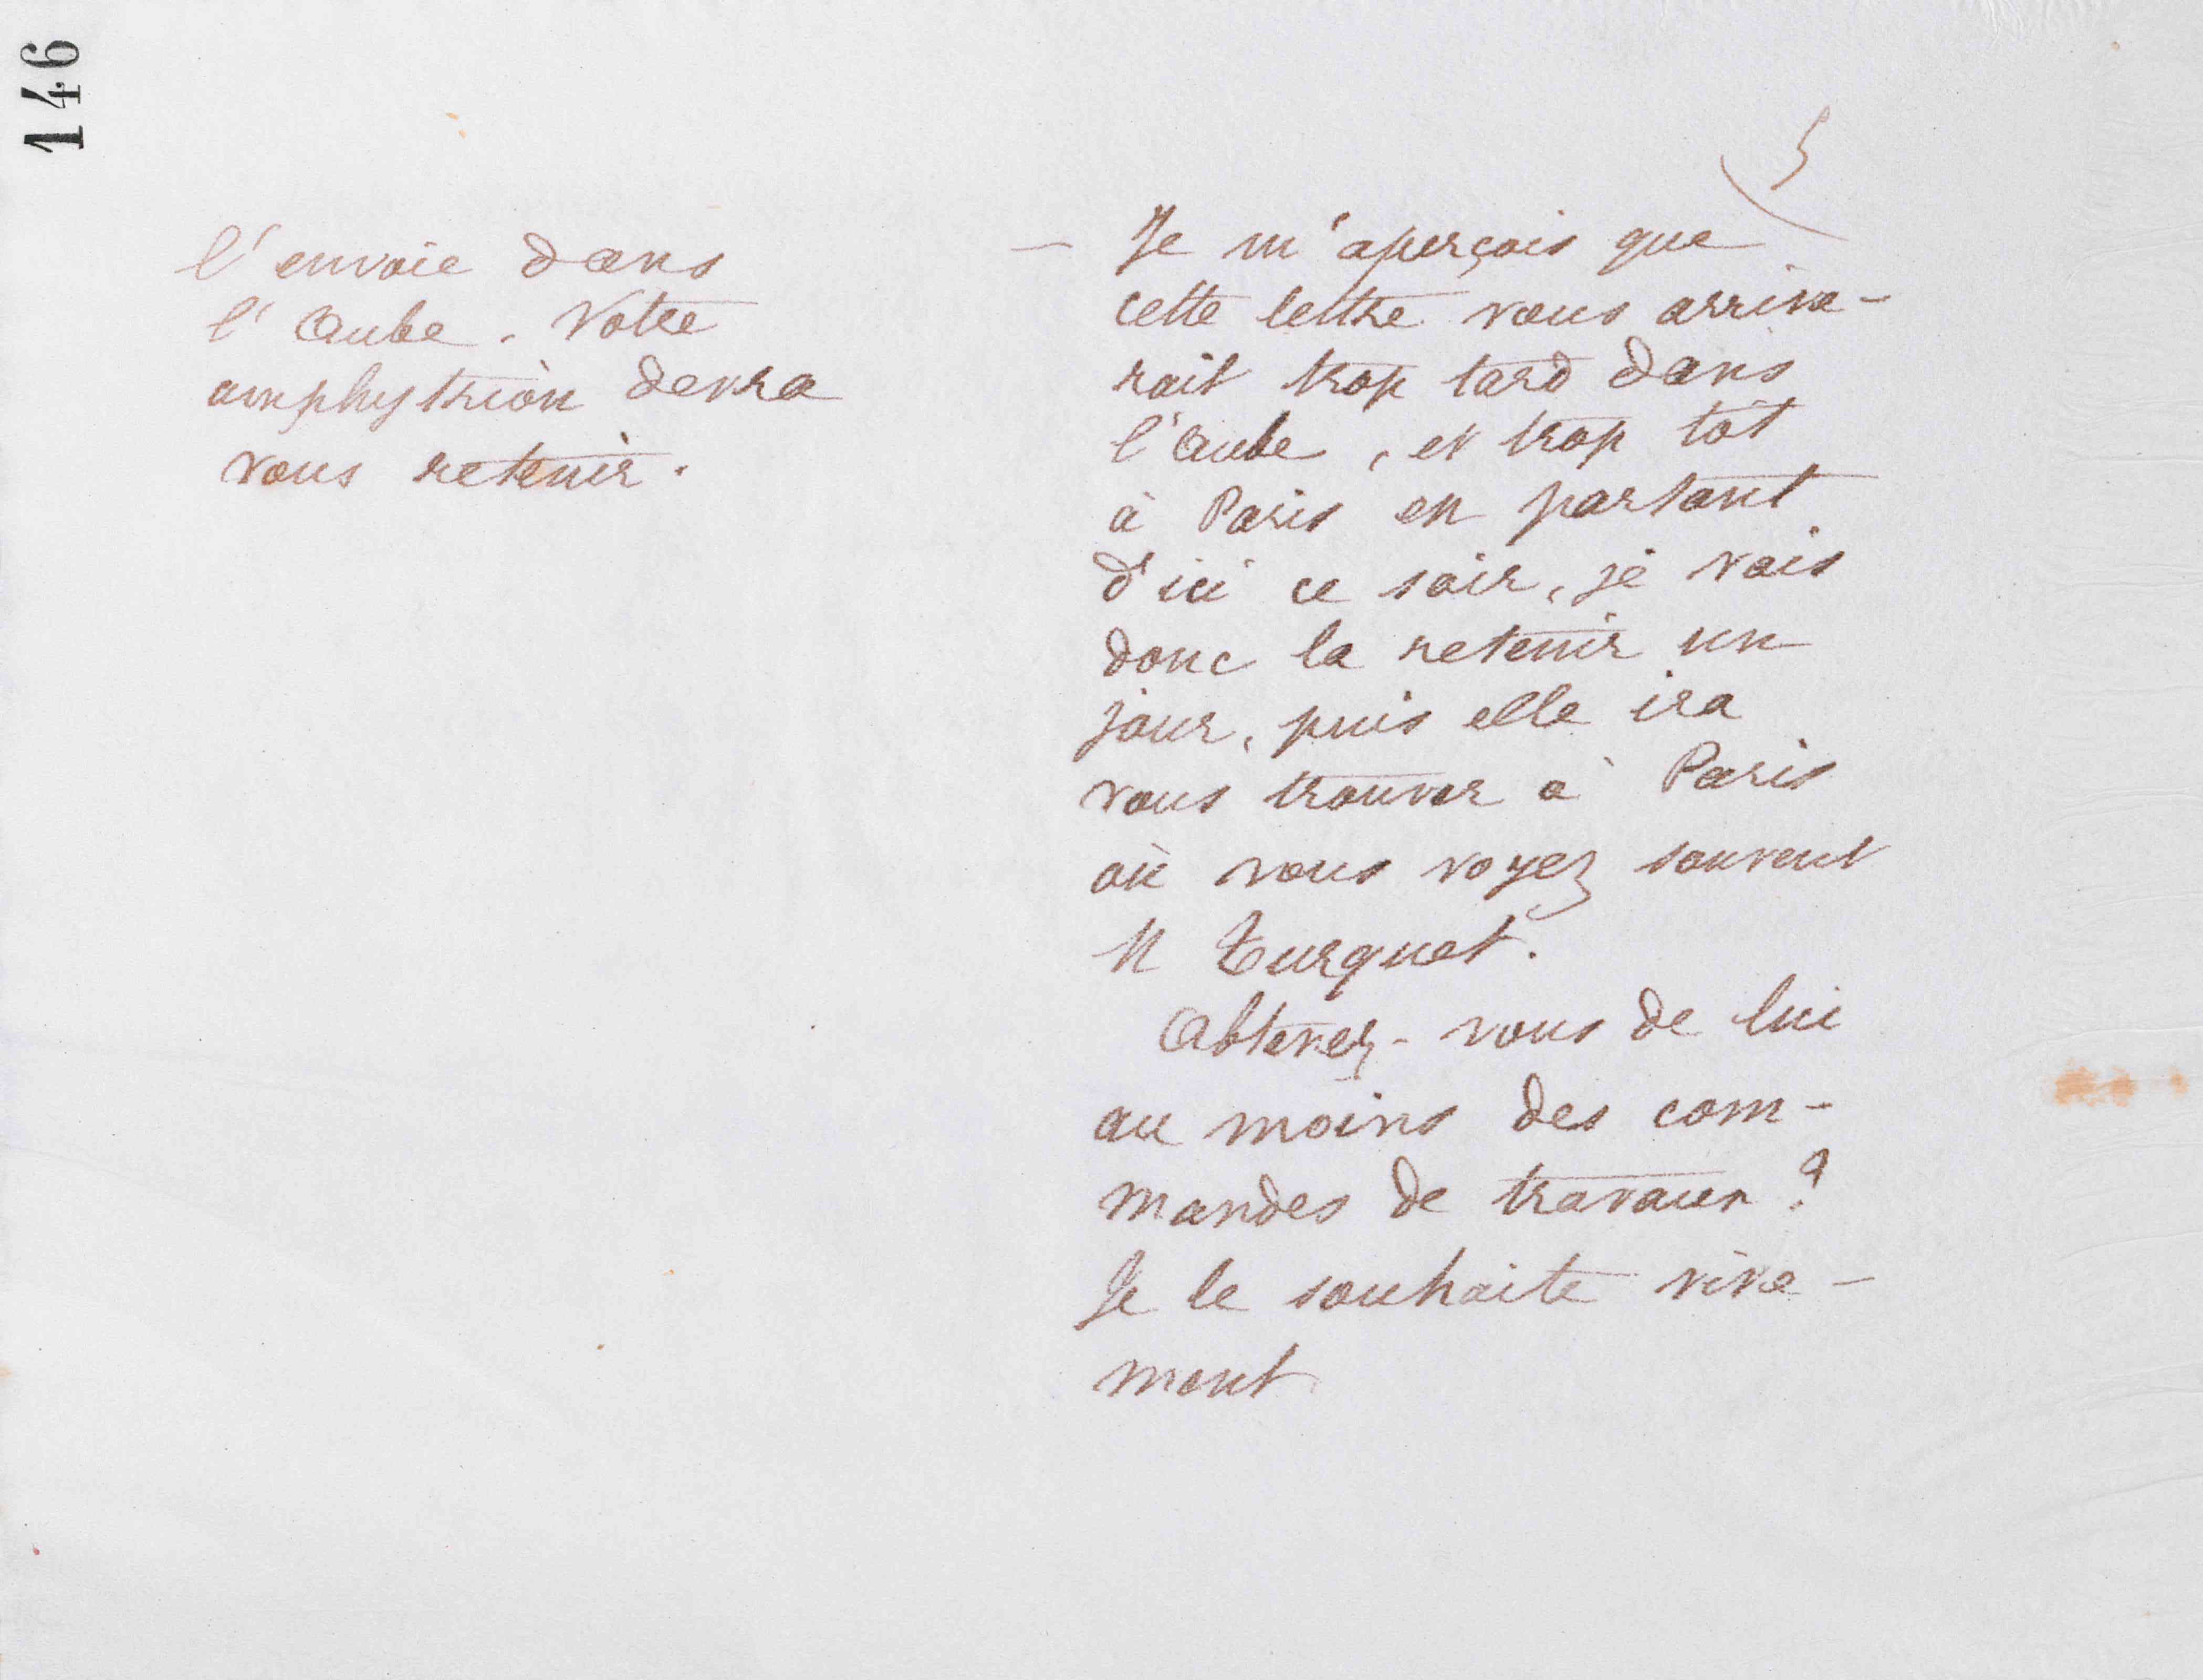 146
l'envoie dans
l'Aube. Votre
amphytrion devra
vous retenir.
5
— Je m'aperçois que
cette lettre vous arrive-
rait trop tard dans
l'Aube, et trop tôt
à Paris en partant
d'ici ce soir, je vais
donc la retenir un
jour, puis elle ira
vous trouver à Paris
où vous voyez souvent
M Turquet.
Obtenez-vous de lui
au moins des com-
mandes de travaux ?
Je le souhaite vive-
ment